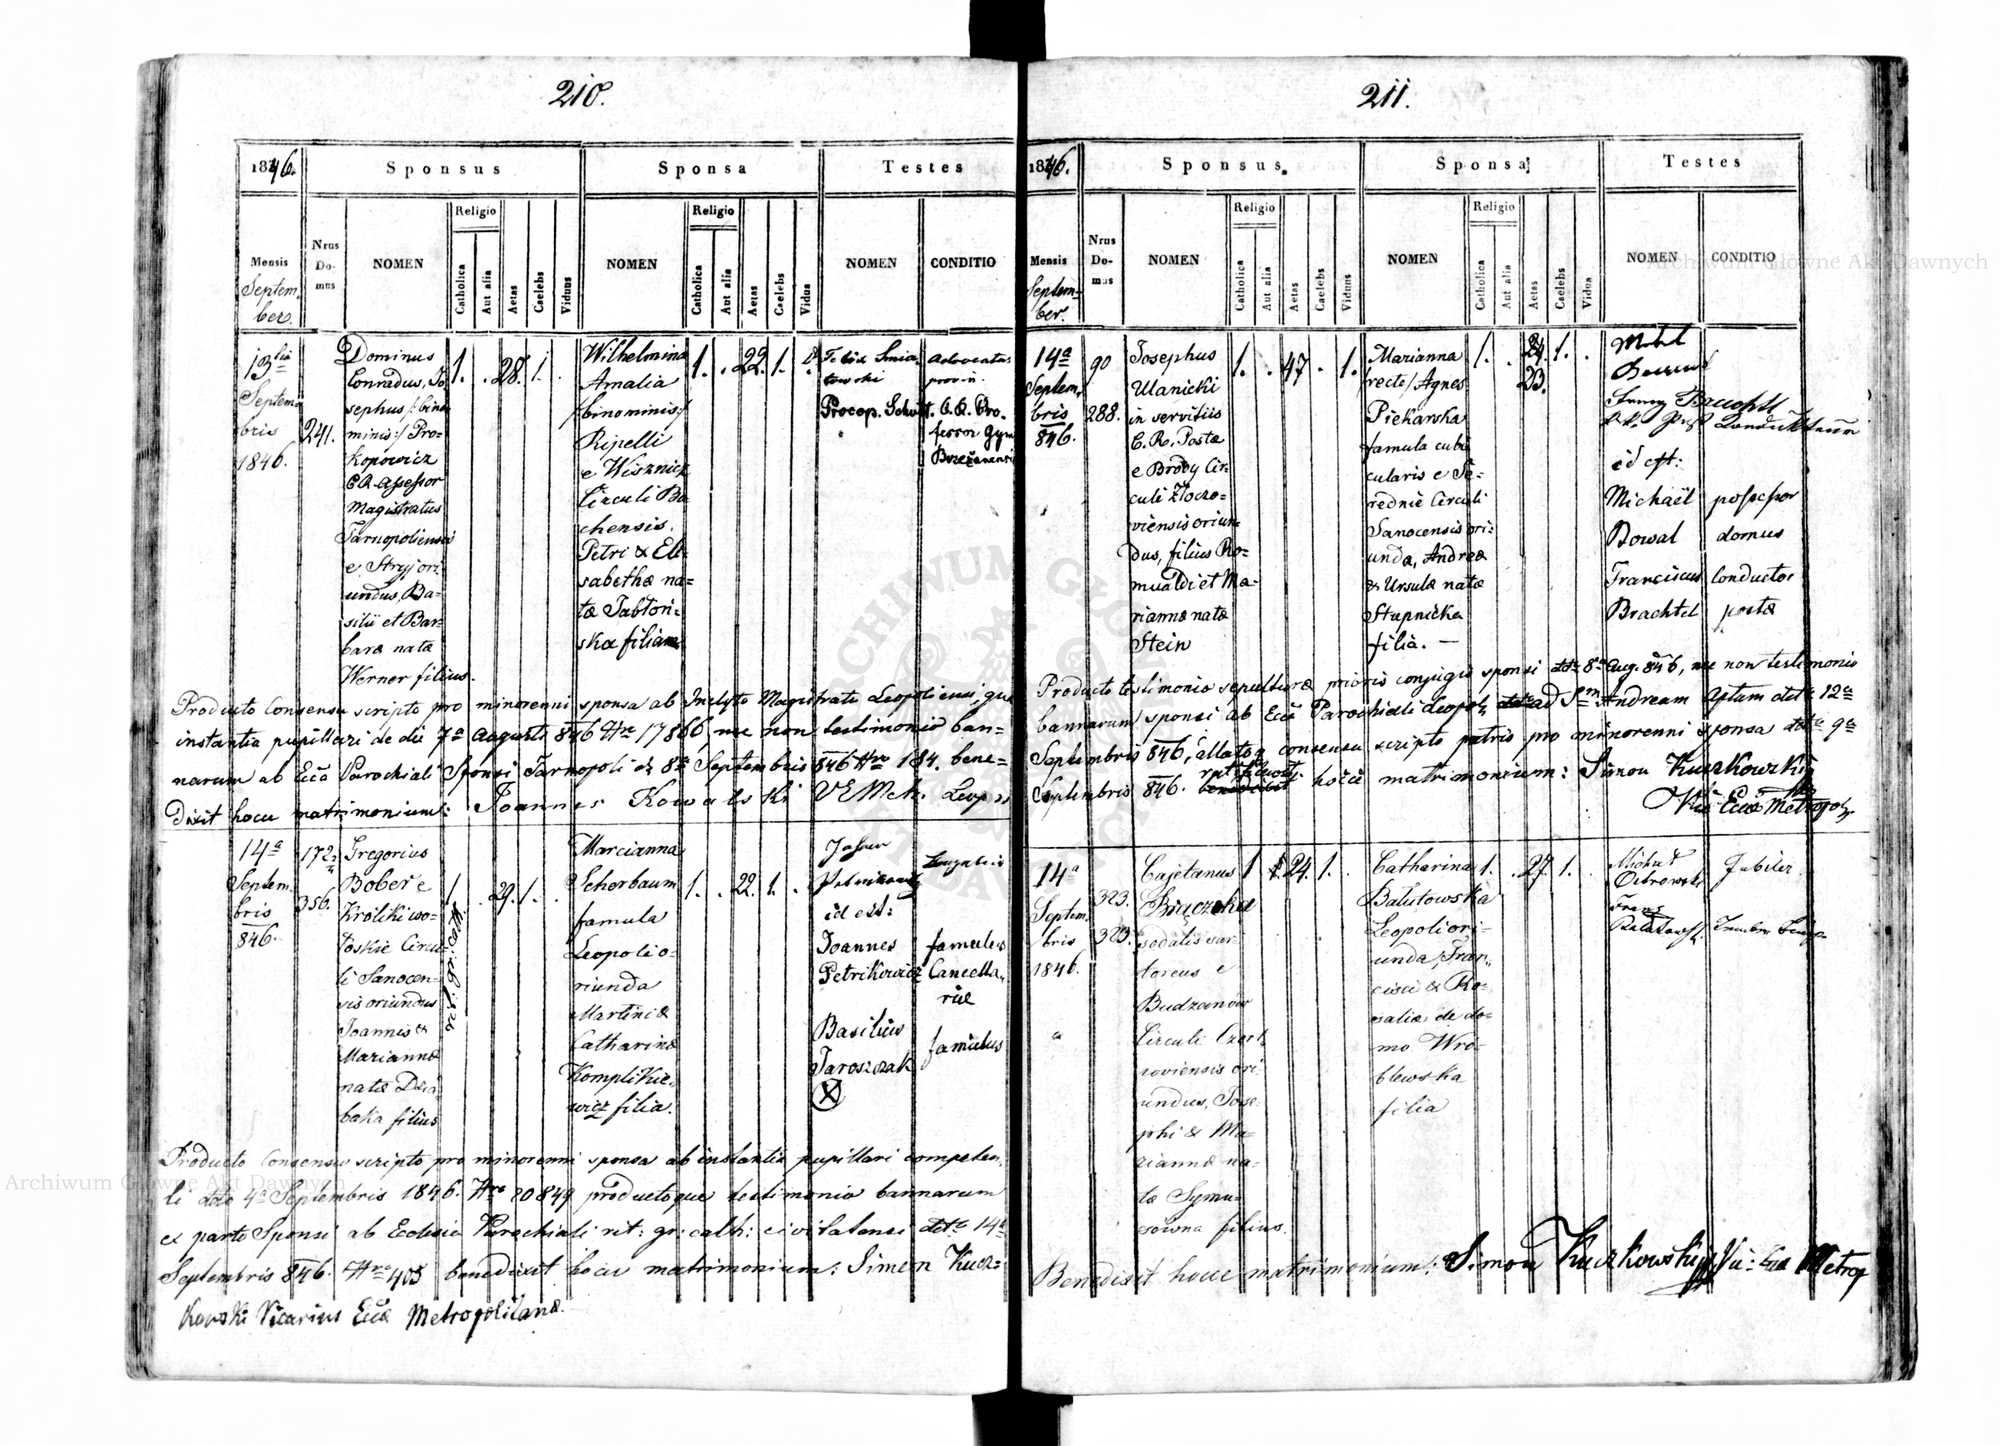 210.
1846.
Sponsus
Sponsa
Testes
Mensis
Septem-
ber.
Nrus
Do-
mus
NOMEN
Religio
Catholica
Aut alia
Aetas
Caelebs
Viduus
NOMEN
Religio
Catholica
Aut alia
Aetas
Caelebs
Vidua
NOMEN
CONDITIO
13tia
Septem
bris
1846.
241.
Dominus
Conradus, Jo
sephus /: bino
minis :/ Pro-
kopowicz
CR Assessor
Magistratus
Tarnopoliensis
e Stryj ori
undus, Ba-
silii et Bar-
barae natae
Werner filius.
1. . 28. 1. .
Wilhelmina
Amalia
/binominis:/
Ripelli
e Wisznicz
Circuli Bo
chensis.
Petri & Eli
sabethae na=
tae Jabłoń-
ska filia
1. . 22. 1.
Felix Smia-
towski
Procop.
Advocatus
provin.
C. R. Pro-
fessor Gym
Brzeżanensis
Producto Consensu scripto pro minorenni sponsa ab Inclyto Magistratu Leopoliensi, qua
instantia pupillari de die 7a Augusti 846 Nro 17866, nec non testimonio ban=
narum ab Ecca Parochiali Sponsi Tarnopoli de 8a Septembris 846 Nro 184. bene=
dixit hocce matrimonium: Joannes Kowalski
14a
Septem.
bris
846.
172
356.
Gregorius
Bober e
Króliki wo-
łoskie Circu-
li Sanocen-
sis oriundus
Joannis &
Mariannae
natae Dzia
baka filius
rit: gr: cath:
1. . 29. 1. .
Marcianna
Scherbaum
famula
Leopoli o-
riunda
Martini &
Catharinae
Komplikie-
wicz filia.
1. . 22. 1. .
id est:
Joannes
Petrikowicz
Basilius
Jaroszczak
famulus
Cancella-
riae
famulus
Producto Consensu scripto pro minorenni sponsa ab instantia pupillari competen-
ti dto 4a Septembris 1846. Nro 20849 productoque testimonio bannarum
ex parte Sponsi ab Ecclesia Parochiali rit: gr: cath: civitatensi dto 14a
Septembris 846. Nro 405 benedixit hocce matrimonium: Simon Kucz=
kowski Vicarius Eccae Metropolitanae.
211.
1846.
Sponsus.
Sponsa
Testes
Mensis
Septem-
ber.
Nrus
Do-
mus
NOMEN
Religio
Catholica
Aut alia
Aetas
Caelebs
Viduus
NOMEN
Religio
Catholica
Aut alia
Aetas
Caelebs
Vidua
NOMEN
CONDITIO
14a
Septem.
bris
846.
90
288.
Josephus
Ulanicki
in servitiis
C. R. Postae
e Brody Cir-
culi Złoczo-
viensis oriun
dus, filius Ro-
mualdi et Ma-
riannae natae
Stein
1. . 47 . 1.
Marianna
recte / Agnes
Piekarska
famula cubi
cularis e Se-
rednie Circuli
Sanocensis ori-
unda, Andreae
& Ursulae natae
Stupnicka
filia. —
1. . 24. 1. .
23.
id est:
Michaël
Bowal
Franciscus
Brachtel
possessor
domus
conductor
postae
Producto testimonio sepulturae prioris conjugis sponsi dto 8a Aug. 846, nec non testimonio
bannarum sponsi ab Ecca Parochiali Leopol. ad Sm Andream Aptum dto 12a
Septembris 846, allatoq consensu scripto patris pro minorenni sponsa dto 9a
Septembris 846. hocce matrimonium: Simon Kuczkowski
Vic. Eccae Metropol.
14a
Septem.
bris
1846.
323.
323.
Cajetanus
sodalis sar-
toreus e
Budzanów
Circuli Czort
koviensis ori
undus, Jose-
phi & Ma-
riannae na-
tae Symu-
sowna filius.
1 24. 1. .
Catharina
Balutowska
Leopoli ori-
unda, Fran-
cisci & Ro-
saliae de do-
mo Wro-
blewska
filia
1. . 27. 1. .
Michał
Ostrowski
Jubiler
Benedixit hocce matrimonium: Simon Kuczkowski Vic: Metrop
Archiwum Główne Akt Dawnych
Archiwum Główne Akt Dawnych
ARCHIWUM GŁÓWNE AKT DAWNYCH